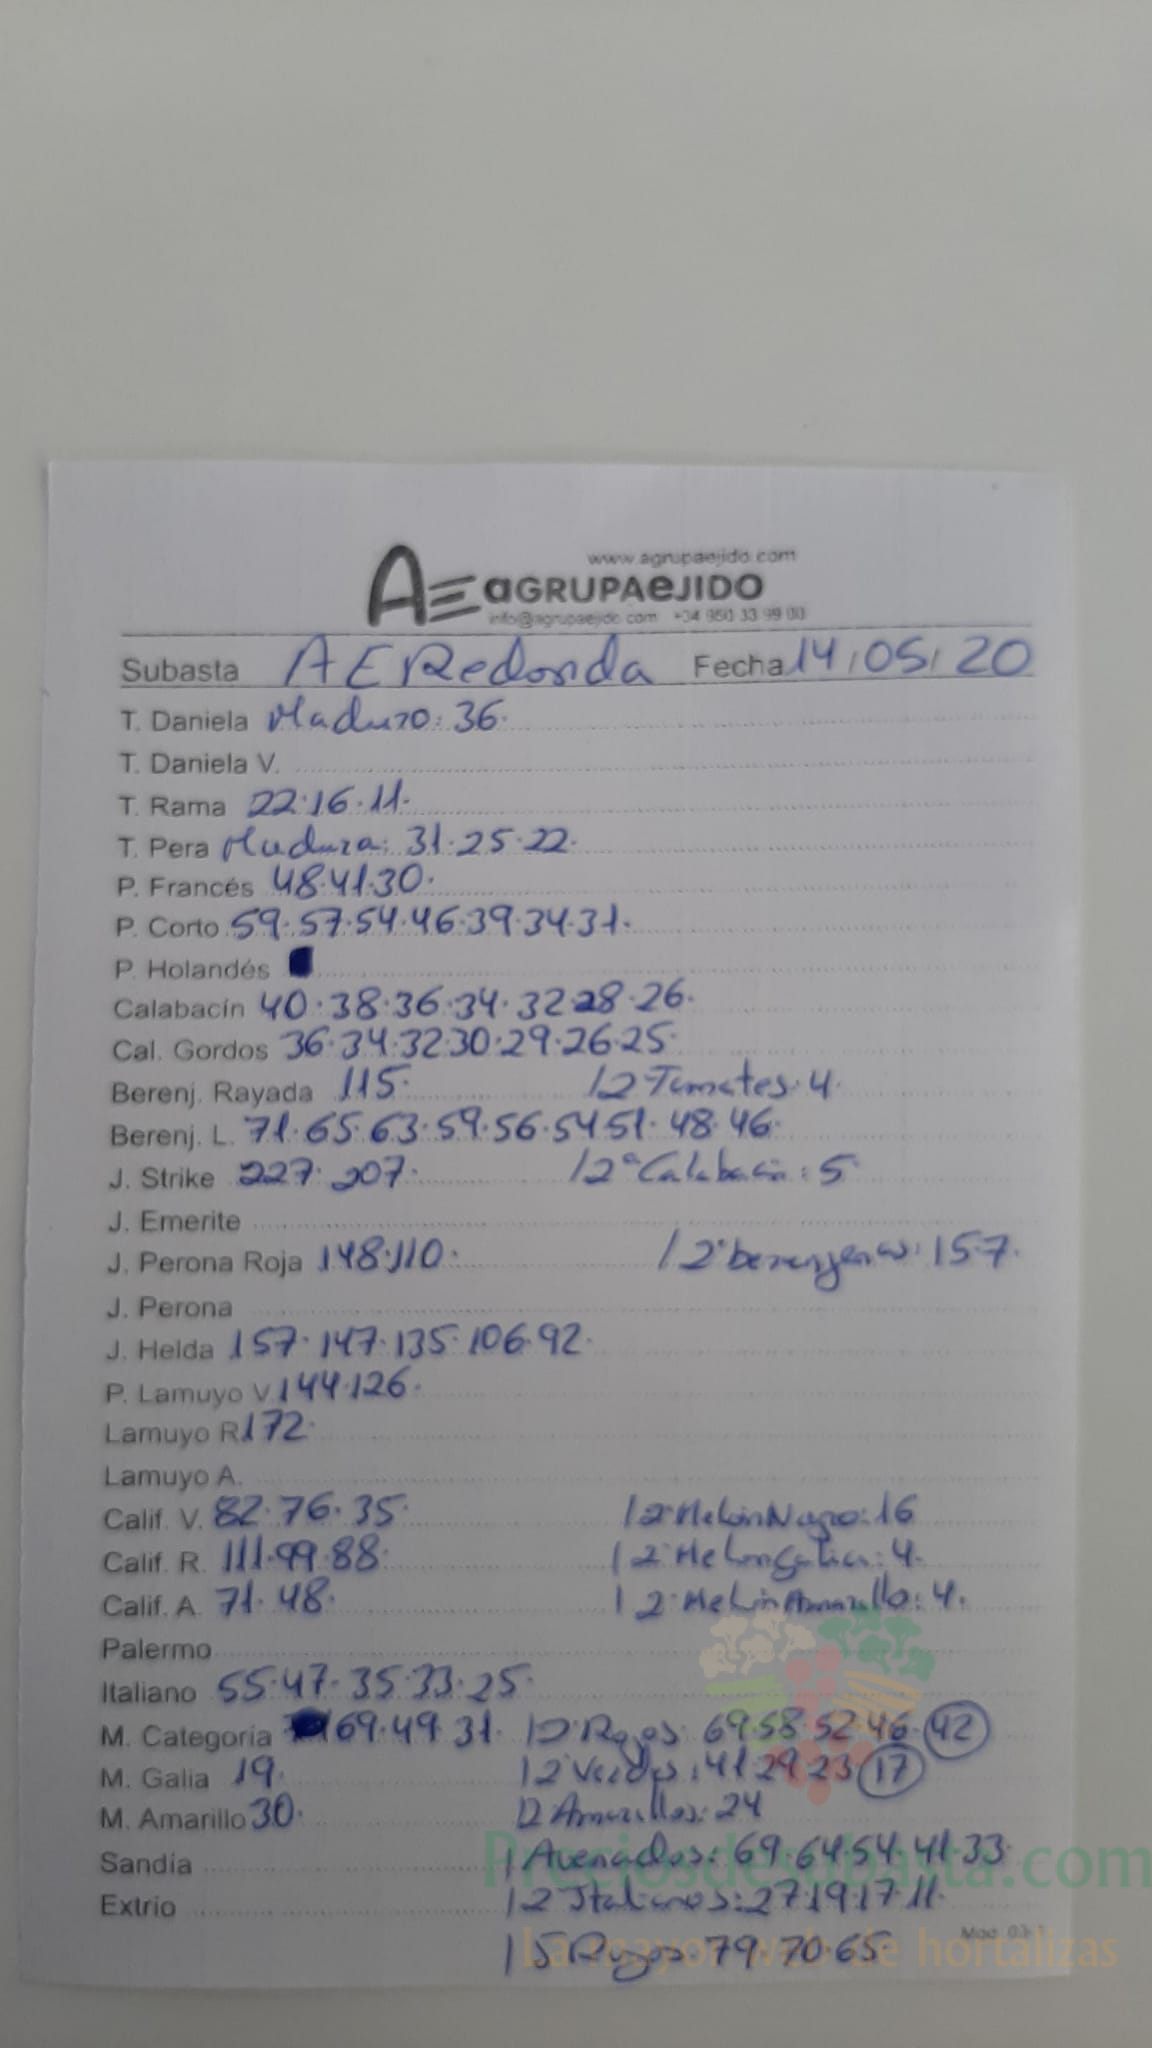 www.agrupaejido.com
AE aGRUPAeJIDO
info@agrupaejido.com +34 950 33 99 00
Subasta AE Redonda Fecha 14/05/20
T. Daniela Maduro: 36.
T. Daniela V.
T. Rama 22.16.11.
T. Pera Madura: 31.25.22.
P. Francés 48.41.30.
P. Corto 59.57.54.46.39.34.31.
P. Holandés
Calabacín 40.38.36.34.32.28.26.
Cal. Gordos 36.34.32.30.29.26.25.
Berenj. Rayada 115. / 2ª Tomates. 4.
Berenj. L. 71.65.63.59.56.54.51.48.46.
J. Strike 227.207. / 2ª Calabacín: 5
J. Emerite
J. Perona Roja 148.110. / 2ª berenjenas: 15.7.
J. Perona
J. Helda 157.147.135.106.92.
P. Lamuyo V 144.126.
Lamuyo R 172.
Lamuyo A.
Calif. V. 82.76.35. / 2ª Melón Negro: 16
Calif. R. 111.99.88. / 2ª Melon Galia: 4.
Calif. A. 71.48. / 2ª Melón Amarillo: 4.
Palermo
Italiano 55.47.35.33.25.
M. Categoría 69.49.31. / 2ª Rojos: 69.58.52.46. 42
M. Galia 19. / 2ª Verdes: 41.29.23 17
M. Amarillo 30. / 2 Amarillos: 24
Sandía / Asurcados: 69.64.54.41.33.
Extrio / 2 Italianos: 27.19.17.11.
Mod. 03-
/ S Rojos: 79.70.65
Preciosdesubasta.com
La mayor web de hortalizas